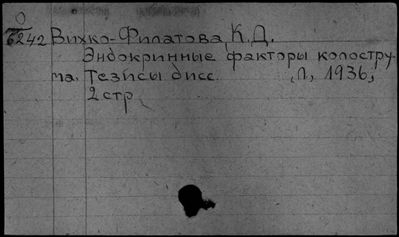 О
Б242 Вихко-Филатова, К.Д.
Эндокринные факторы колостру-
ма. Тезисы дисс. Л, 1936,
2 стр